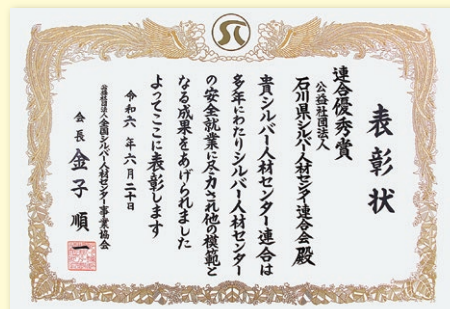 表彰状
連合優秀賞
公益社団法人
石川県シルバー人材センター連合会 殿
貴シルバー人材センター連合は
多年にわたりシルバー人材センター
の安全就業に尽力され他の模範と
なる成果をあげられました
よってここに表彰します
令和六年六月二十日
公益社団法人全国シルバー人材センター事業協会
会長 金子順一